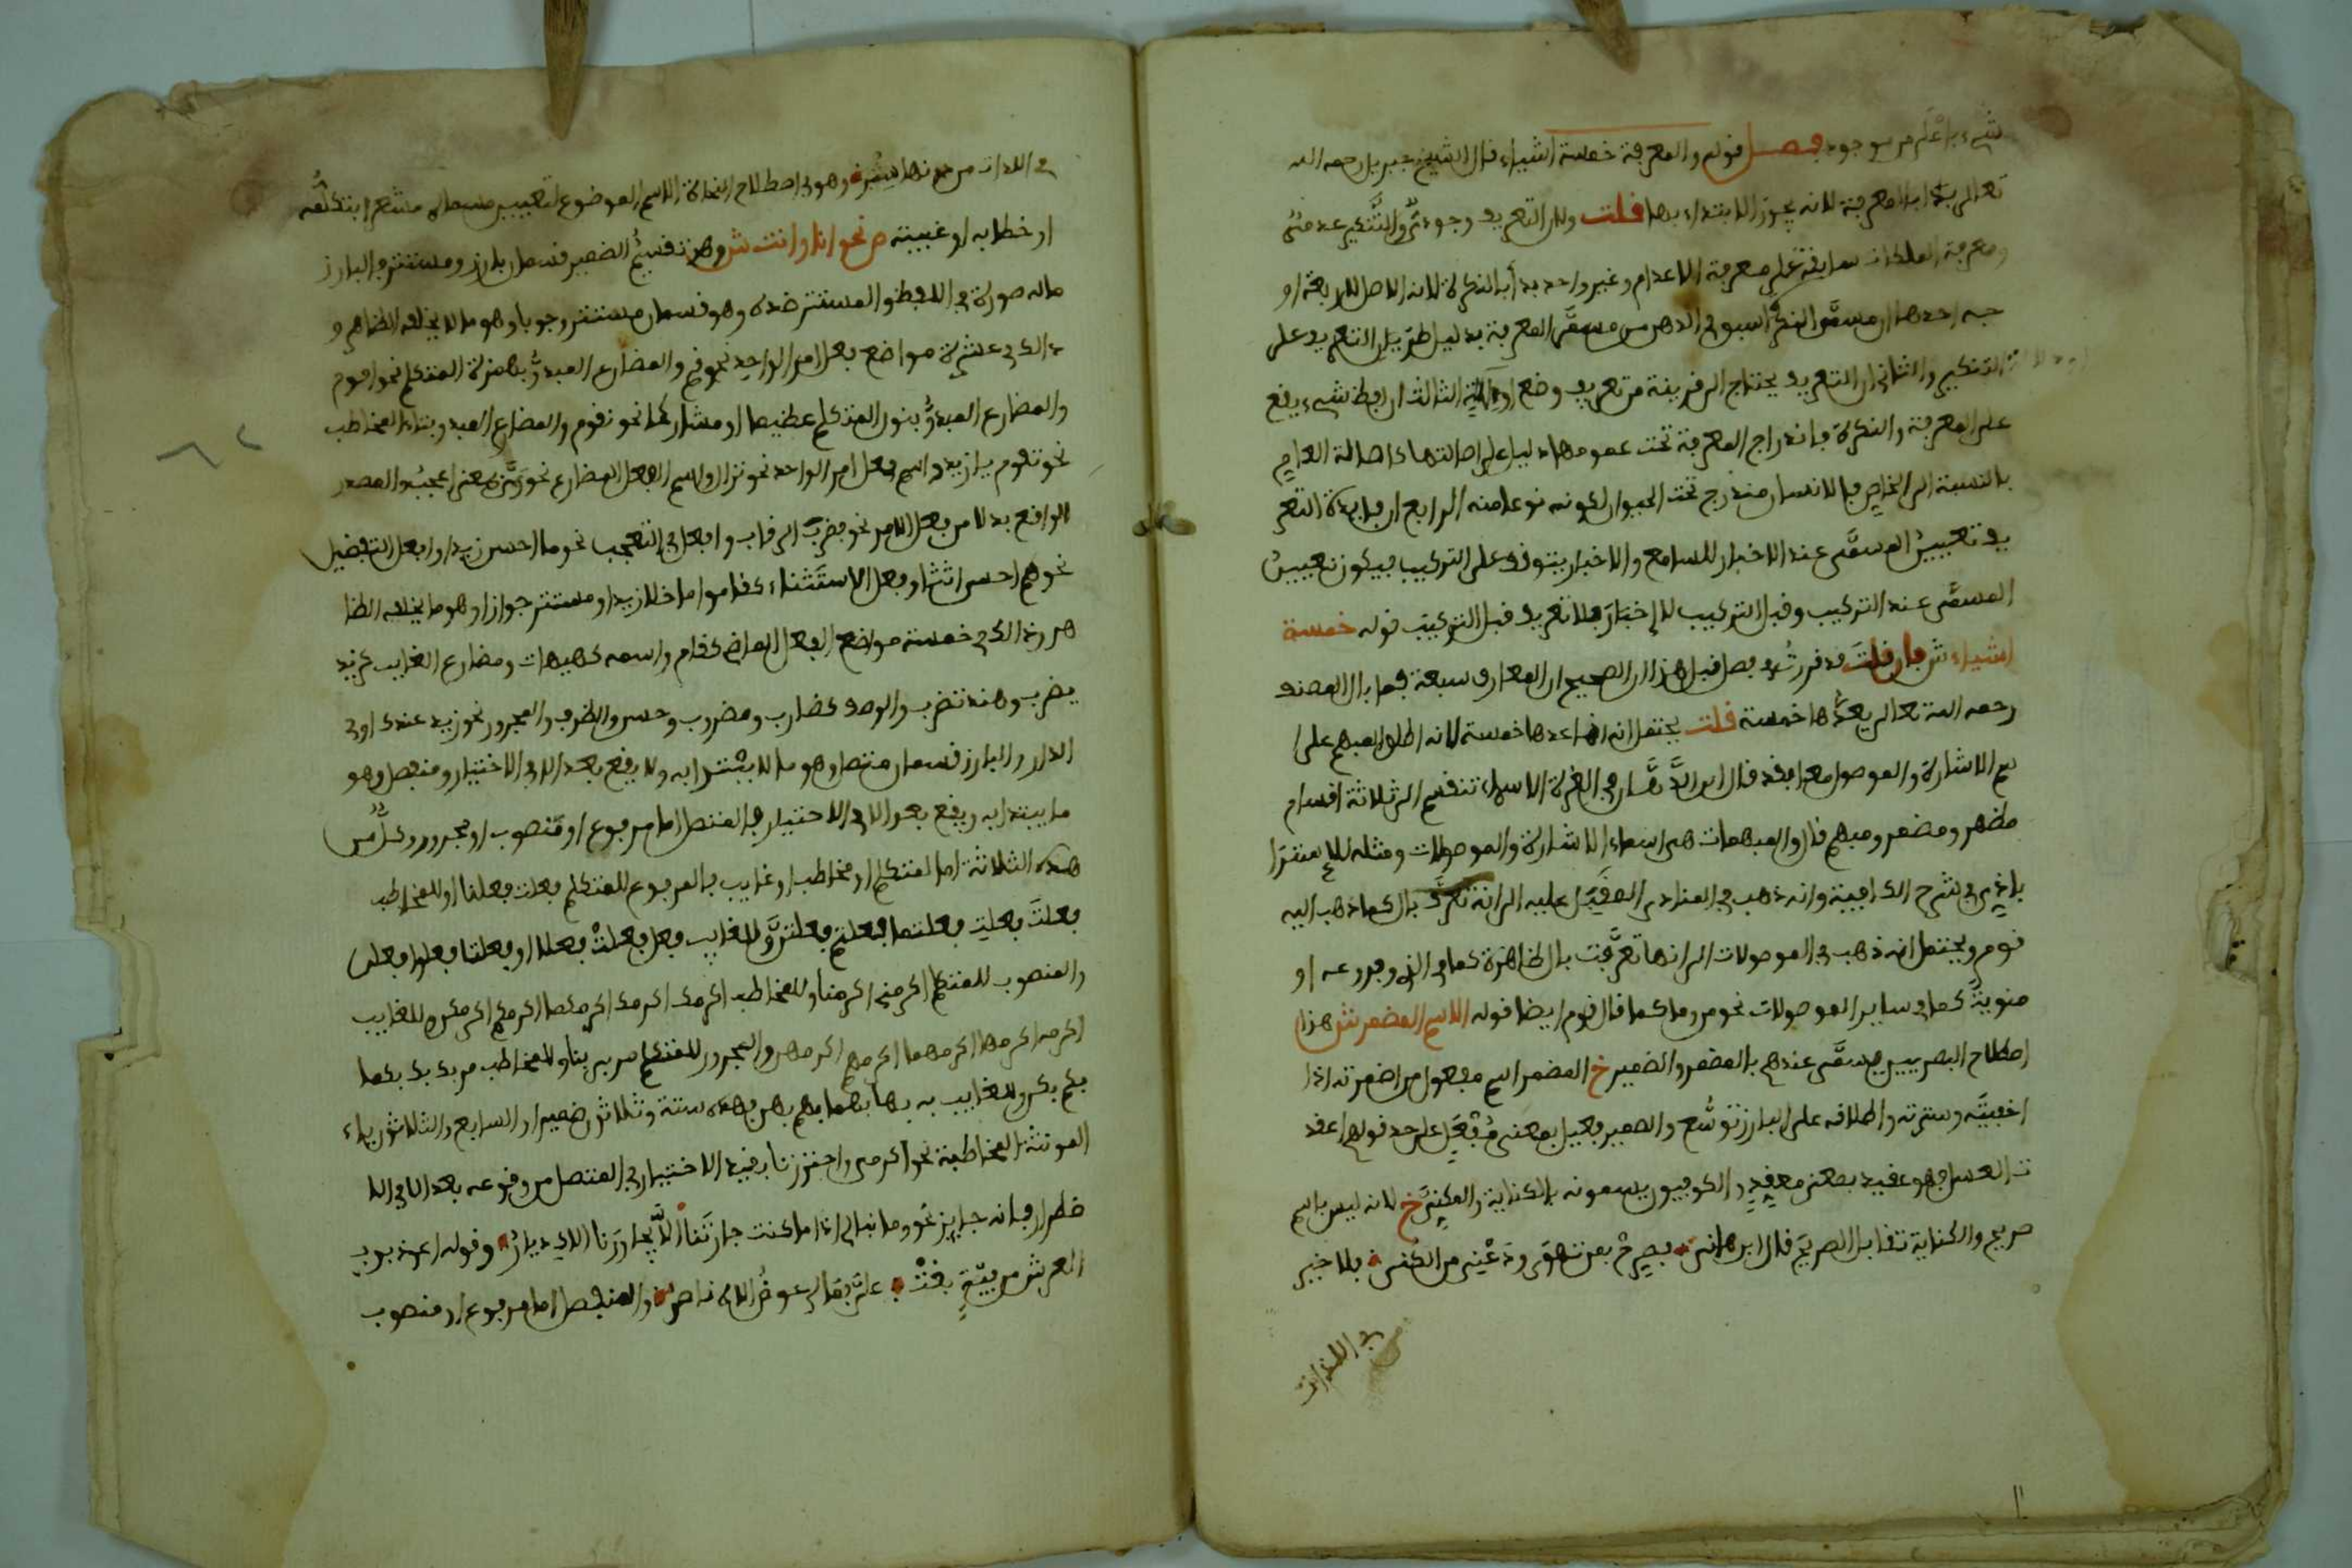 شيء باعلم من موجود فصل قوله والمعرفة خمسة اشياء قال الشيخ جبريل رحمه الله
تعالى بدا بالمعرفة لانه يجوز الابتداء بها قلت ولان التعريف وجودي والتنكير عدمي
ومعرفة الملكات سابقة على معرفة الاعدام وغير واحد بدأ بالنكرة لانه الاصل لاربعة او
جه احدها ان مسمى النكرة اسبق في الذهن من مسمى المعرفة بدليل طريان التعريف على
التنكير والثاني ان التعريف يحتاج الى قرينة من تعريف وضع او الة الثالث ان لفظ شيء يقع
على المعرفة والنكرة فاندراج المعرفة تحت عمومها دليل على اصالتها كاصالة العام
بالنسبة الى الخاص فالانسان مندرج تحت الحيوان لكونه نوعا منه الرابع ان فايدة التعر
يف تعيين المسمى عند الاخبار للسامع والاخبار يتوقف على التركيب فيكون تعيين
المسمى عند التركيب وقبل التركيب لا إخبار فلا تعريف قبل التركيب قوله خمسة
اشياء ش فان قلت قد قررت في فصل قبل هذا ان الصحيح ان المعارف سبعة فما بال المصنف
رحمه الله تعالى يعدها خمسة قلت يحتمل انه انما عدها خمسة لانه اطلق المبهم على ا
سم الاشارة والموصول معا فقد قال ابن الدهان في الغرة الاسماء تنقسم الى ثلاثة اقسام
مظهر ومضمر ومبهم قال والمبهمات هي اسماء الاشارة والموصولات ومثله للاستترا
باذي في شرح الكافية وانه ذهب في المنادى المقبل عليه الى انه تعرف بال كما ذهب اليه
قوم ويحتمل انه ذهب في الموصولات الى انها تعرفت بال ظاهرة كما في الذي وفروعه او
منوية كما في ساير الموصولات نحو من وما كما قال قوم ايضا قوله الاسم المضمر ش هذا
اصطلاح البصريين يسمى عندهم بالمضمر والضمير خ المضمر اسم مفعول من اضمرته اذا
اخفيته وسترته واطلاقه على البارز توسع والضمير فعيل بمعنى مفعل على حد قولهم اعقد
ت العسل فهو عقيد بمعنى معقد والكوفيون يسمونه بالكناية والمكني خ لانه ليس باسم
صريح والكناية تقابل الصريح قال ابن هاني فصرح بمن تهوى ودعني من الكنى فلا خير
في اللذات
في اللذات من دونها ستر وهو في اصطلاح النحاة الاسم الموضوع لتعيين مسماه مشعرا بتكلمه
او خطابه او غيبته ص نحو انا وانت ش وهذا تقسيم الضمير قسمان بارز ومستتر والبارز
ماله صورة في اللفظ والمستتر ضده وهو قسمان مستتر وجوبا وهو ما لا يخلفه الظاهر و
ذلك في عشرة مواضع فعل امر الواحد نحو قم والمضارع المبدو بهمزة المتكلم نحو اقوم
والمضارع المبدو بنون المتكلم عظيما او مشاركا نحو نقوم والمضارع المبدو بتاء المخاطب
نحو تقوم يا زيد واسم فعل امر الواحد نحو نزال واسم الفعل المضارع نحو وي بمعنى اعجب والمصدر
الواقع بدلا من فعل الامر نحو فضرب الرقاب وافعل في التعجب نحو ما احسن زيدا وافعل التفضيل
نحو هم احسن اثاثا وفعل الاستثناء كقاموا ما خلا زيدا ومستتر جوازا وهو ما يخلفه الظا
هر وذلك في خمسة مواضع الفعل الماضي كقام واسمه كهيهات ومضارع الغايب كزيد
يضرب وهند تضرب والوصف كضارب ومضروب وحسن والظرف والمجرور نحو زيد عندك او في
الدار والبارز قسمان متصل وهو ما لا يبتدا به ولا يقع بعد الا في الاختيار ومنفصل وهو
ما يبتدا به ويقع بعد الا في الاختيار فالمتصل اما مرفوع او منصوب او مجرور وكل من
هذه الثلاثة اما لمتكلم او مخاطب او غايب فالمرفوع للمتكلم فعلت فعلنا وللمخاطب
فعلت فعلت فعلتما فعلتم فعلتن وللغايب فعل فعلت فعلا وفعلتا فعلوا فعلن
والمنصوب للمتكلم اكرمني اكرمنا وللمخاطب اكرمك اكرمك اكرمكما اكرمكم اكرمكن وللغايب
اكرمه اكرمها اكرمهما اكرمهم اكرمهن والمجرور للمتكلم مر بي بنا وللمخاطب مر بك بك بكما
بكم بكن وللغايب به بها بهما بهم بهن فهذه ستة وثلاثون ضميرا والسابع والثلاثون ياء
المونثة المخاطبة نحو اكرمي واحترزنا بقيد الاختيار في المتصل من وقوعه بعد الا في الا
ضطرار فانه جايز نحو وما نبالي اذا ما كنت جارتنا الا يجاورنا الاك ديار وقوله اعوذ برب
العرش من فئة بغت علي فما لي عوض الاه ناصر والمنفصل اما مرفوع او منصوب